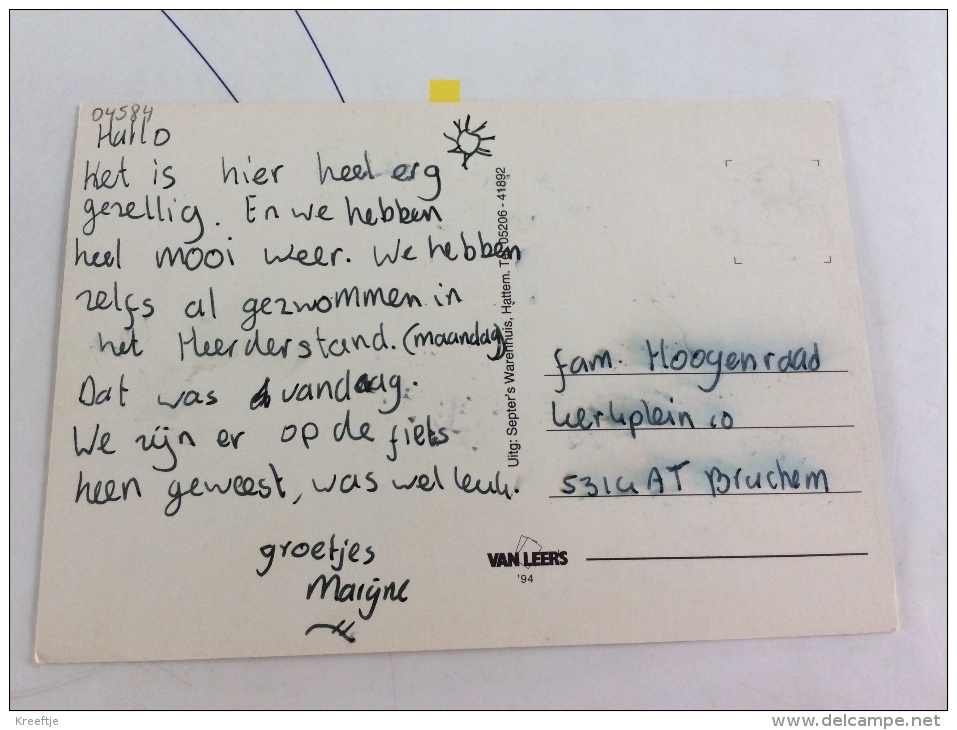 04584
Hallo
Het is hier heel erg
gezellig. En we hebben
heel mooi weer. We hebben
zelfs al gezwommen in
het Heerderstand. (maandag)
Dat was vandaag.
We zijn er op de fiets
heen geweest, was wel leuk.
groetjes
Marijne
Uitg: Septer's Warenhuis, Hattem. Tel. 05206 - 41892
fam. Hoogenraad
kerkplein 10
5314 AT Bruchem
VAN LEER'S
'94
Kreeftje
www.delcampe.net